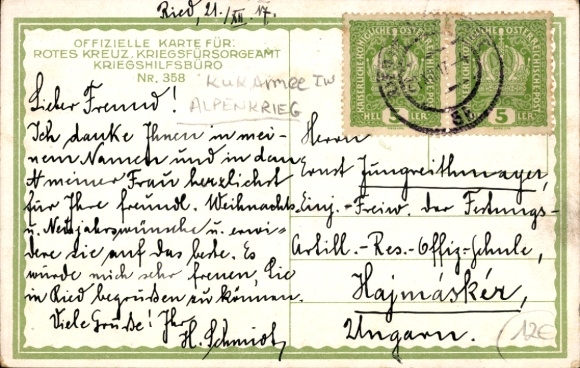 Ried, 21./XII. 17.
OFFIZIELLE KARTE FÜR:
ROTES KREUZ, KRIEGSFÜRSORGEAMT
KRIEGSHILFSBÜRO
NR. 358
KUK ARMEE IM
ALPENKRIEG
Lieber Freund!
Ich danke Ihnen in mei-
nem Namen und in dem
meiner Frau herzlichst
für Ihre freundl. Weihnachts-
u. Neujahrswünsche u. erwi-
dere Sie auf das beste. Es
würde mich sehr freuen, Sie
in Ried begrüßen zu können.
Viele Grüße! Ihr
H. Schmidt
KAISERLICHE KÖNIGLICHE ÖSTERREICHISCHE POST
5
HELLER
KAISERLICHE KÖNIGLICHE ÖSTERREICHISCHE POST
5
HELLER
Herrn
Ernst Jungreithmayer,
Einj.-Freiw. der Festungs-
Artill.-Res.-Offiz-Schule,
Hajmáskér,
Ungarn.
12€